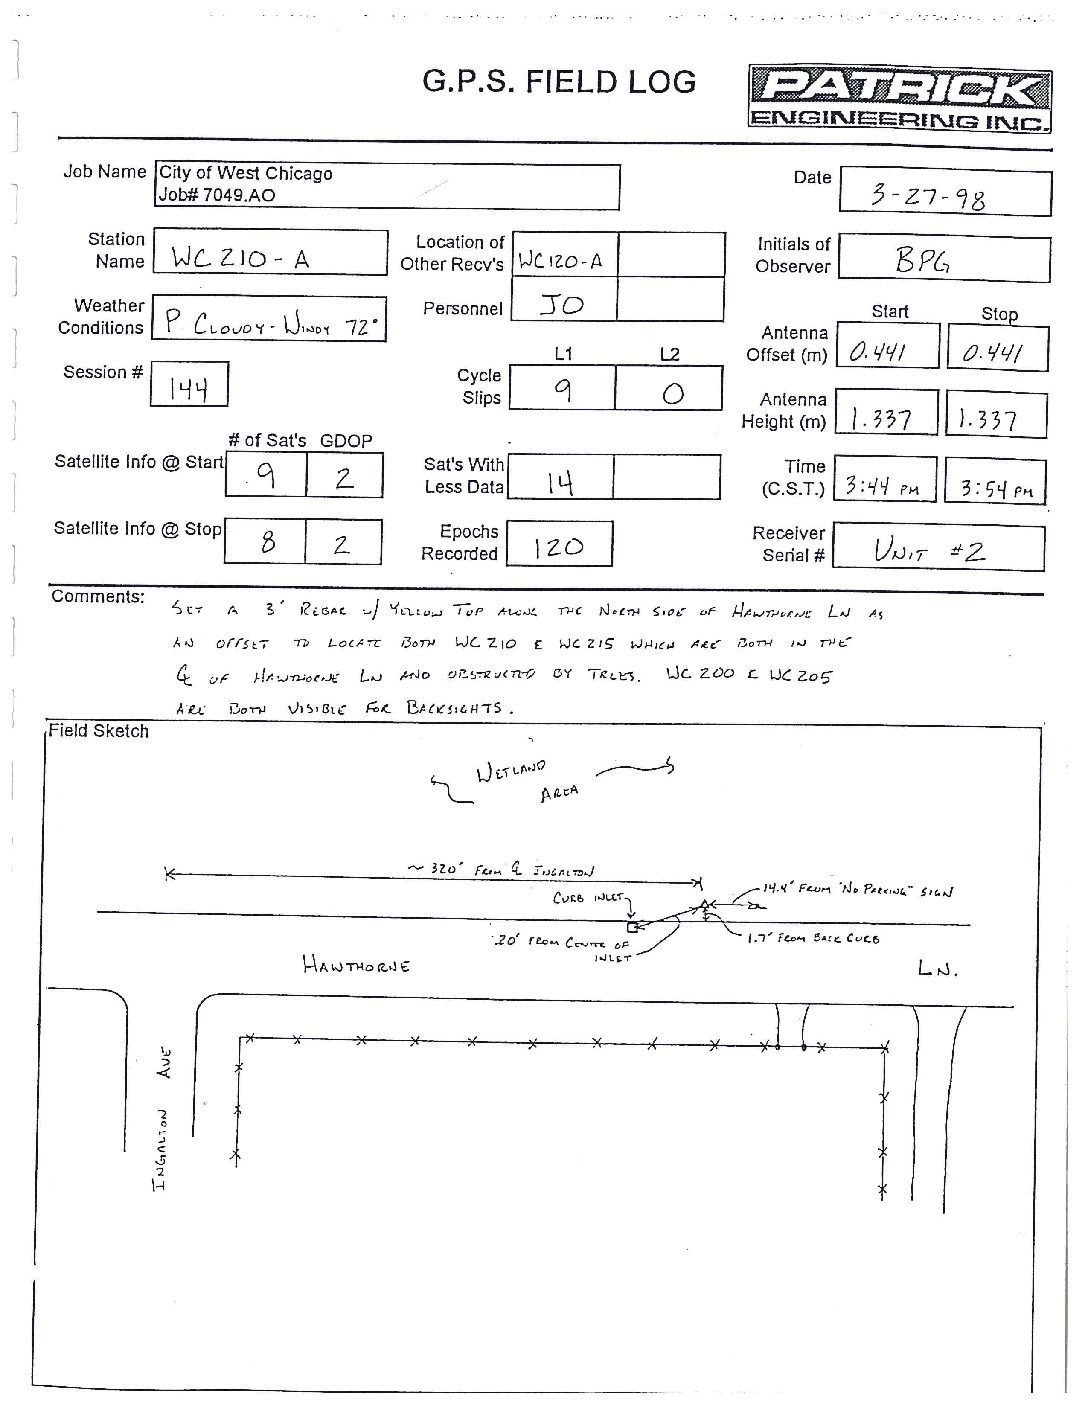 G.P.S. FIELD LOG
PATRICK
ENGINEERING INC.
Job Name City of West Chicago
Job# 7049.AO
Date 3-27-98
Station Name WC 210 - A
Location of Other Recv's WC120-A
Initials of Observer BPG
Weather Conditions P CLOUDY - WINDY 72°
Personnel JO
Start Stop
Antenna Offset (m) 0.441 0.441
Session # 144
L1 L2
Cycle Slips 9 0
Antenna Height (m) 1.337 1.337
# of Sat's GDOP
Satellite Info @ Start 9 2
Sat's With Less Data 14
Time (C.S.T.) 3:44 PM 3:54 PM
Satellite Info @ Stop 8 2
Epochs Recorded 120
Receiver Serial # UNIT #2
Comments:
SET A 3' REBAR W/ YELLOW TOP ALONG THE NORTH SIDE OF HAWTHORNE LN AS
AN OFFSET TO LOCATE BOTH WC 210 & WC 215 WHICH ARE BOTH IN THE
℄ OF HAWTHORNE LN AND OBSTRUCTED BY TREES. WC 200 & WC 205
ARE BOTH VISIBLE FOR BACKSIGHTS.
Field Sketch
WETLAND
AREA
~ 320' FROM ℄ INGALTON
CURB INLET
14.4' FROM "NO PARKING" SIGN
20' FROM CENTER OF
INLET
1.7' FROM BACK CURB
HAWTHORNE LN.
INGALTON AVE